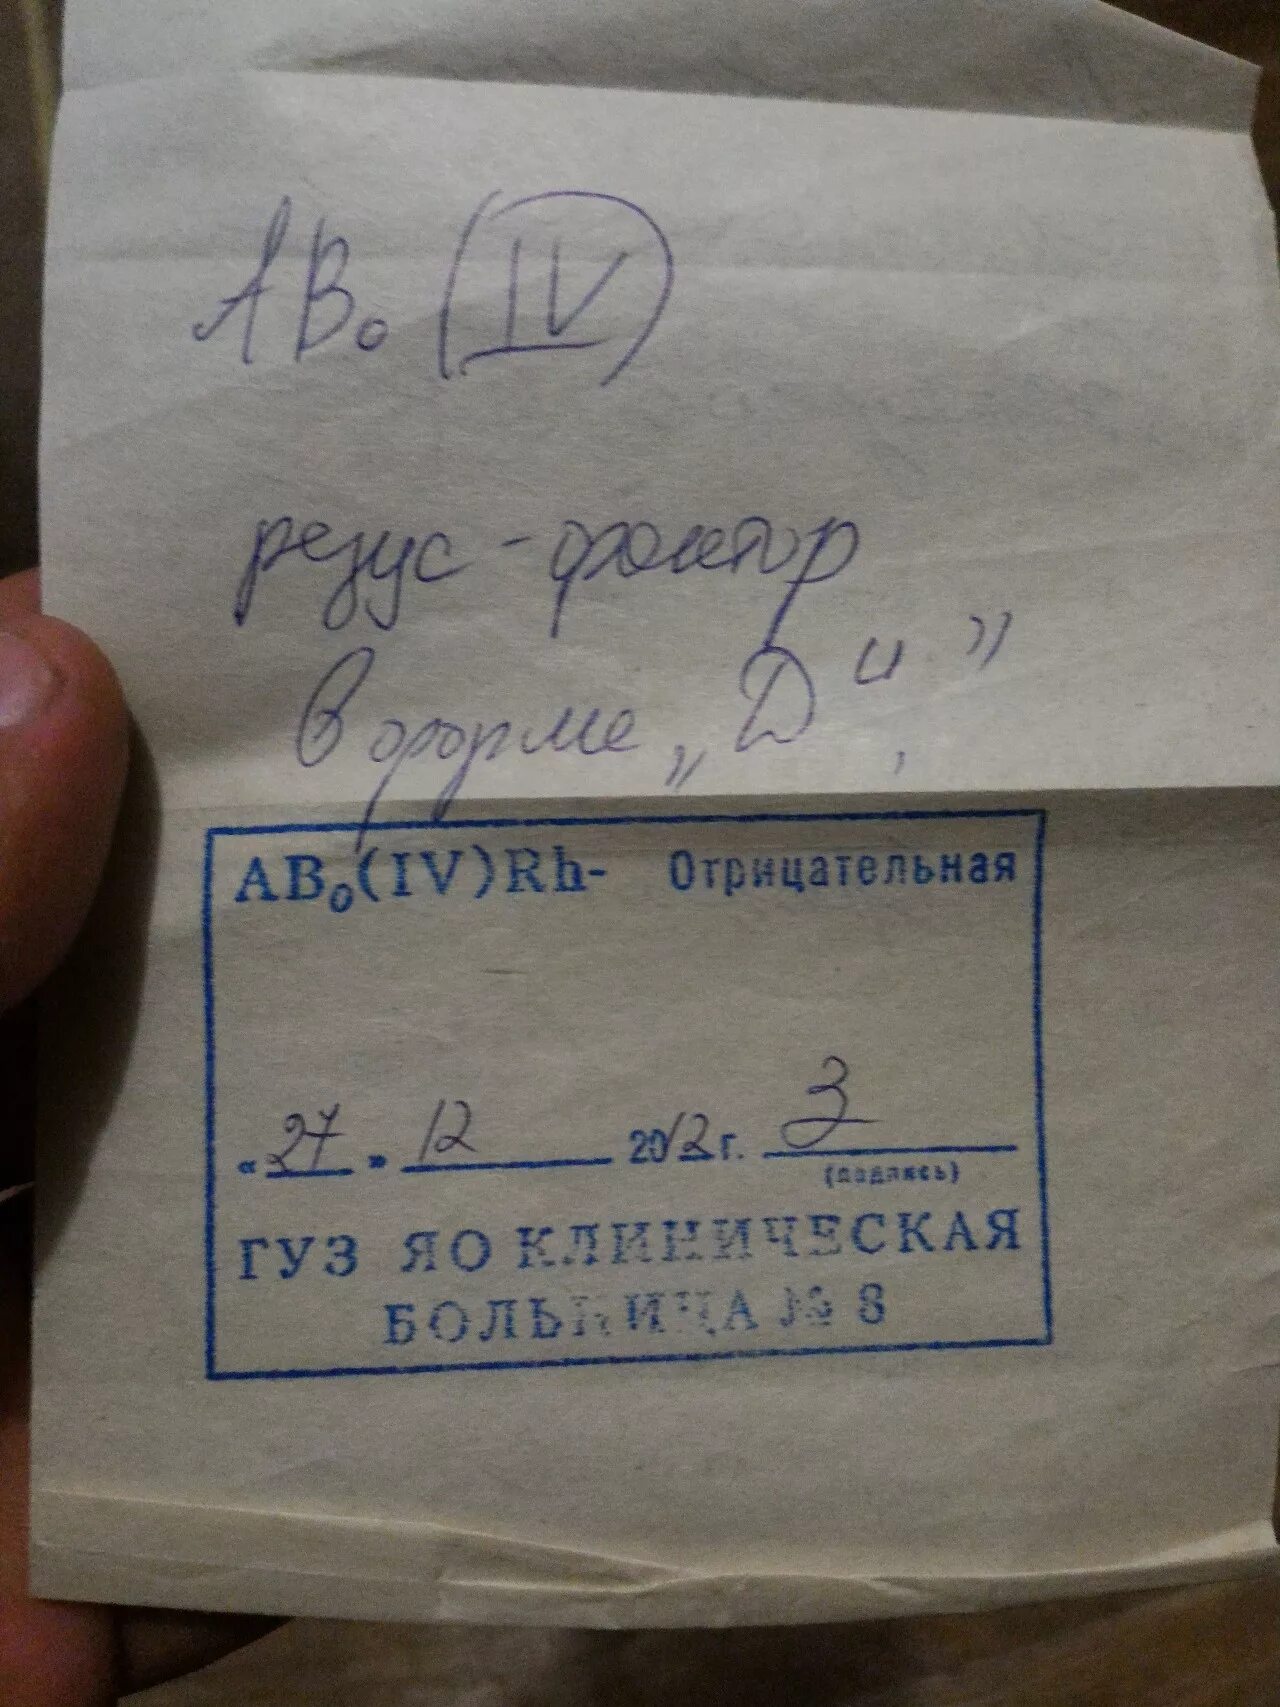 АВо (IV)
резус-фактор
в форме „Dᵘ”
АВ₀(IV)Rh- Отрицательная
«27» 12 2012 г. З
(подпись)
ГУЗ ЯО КЛИНИЧЕСКАЯ
БОЛЬНИЦА № 8